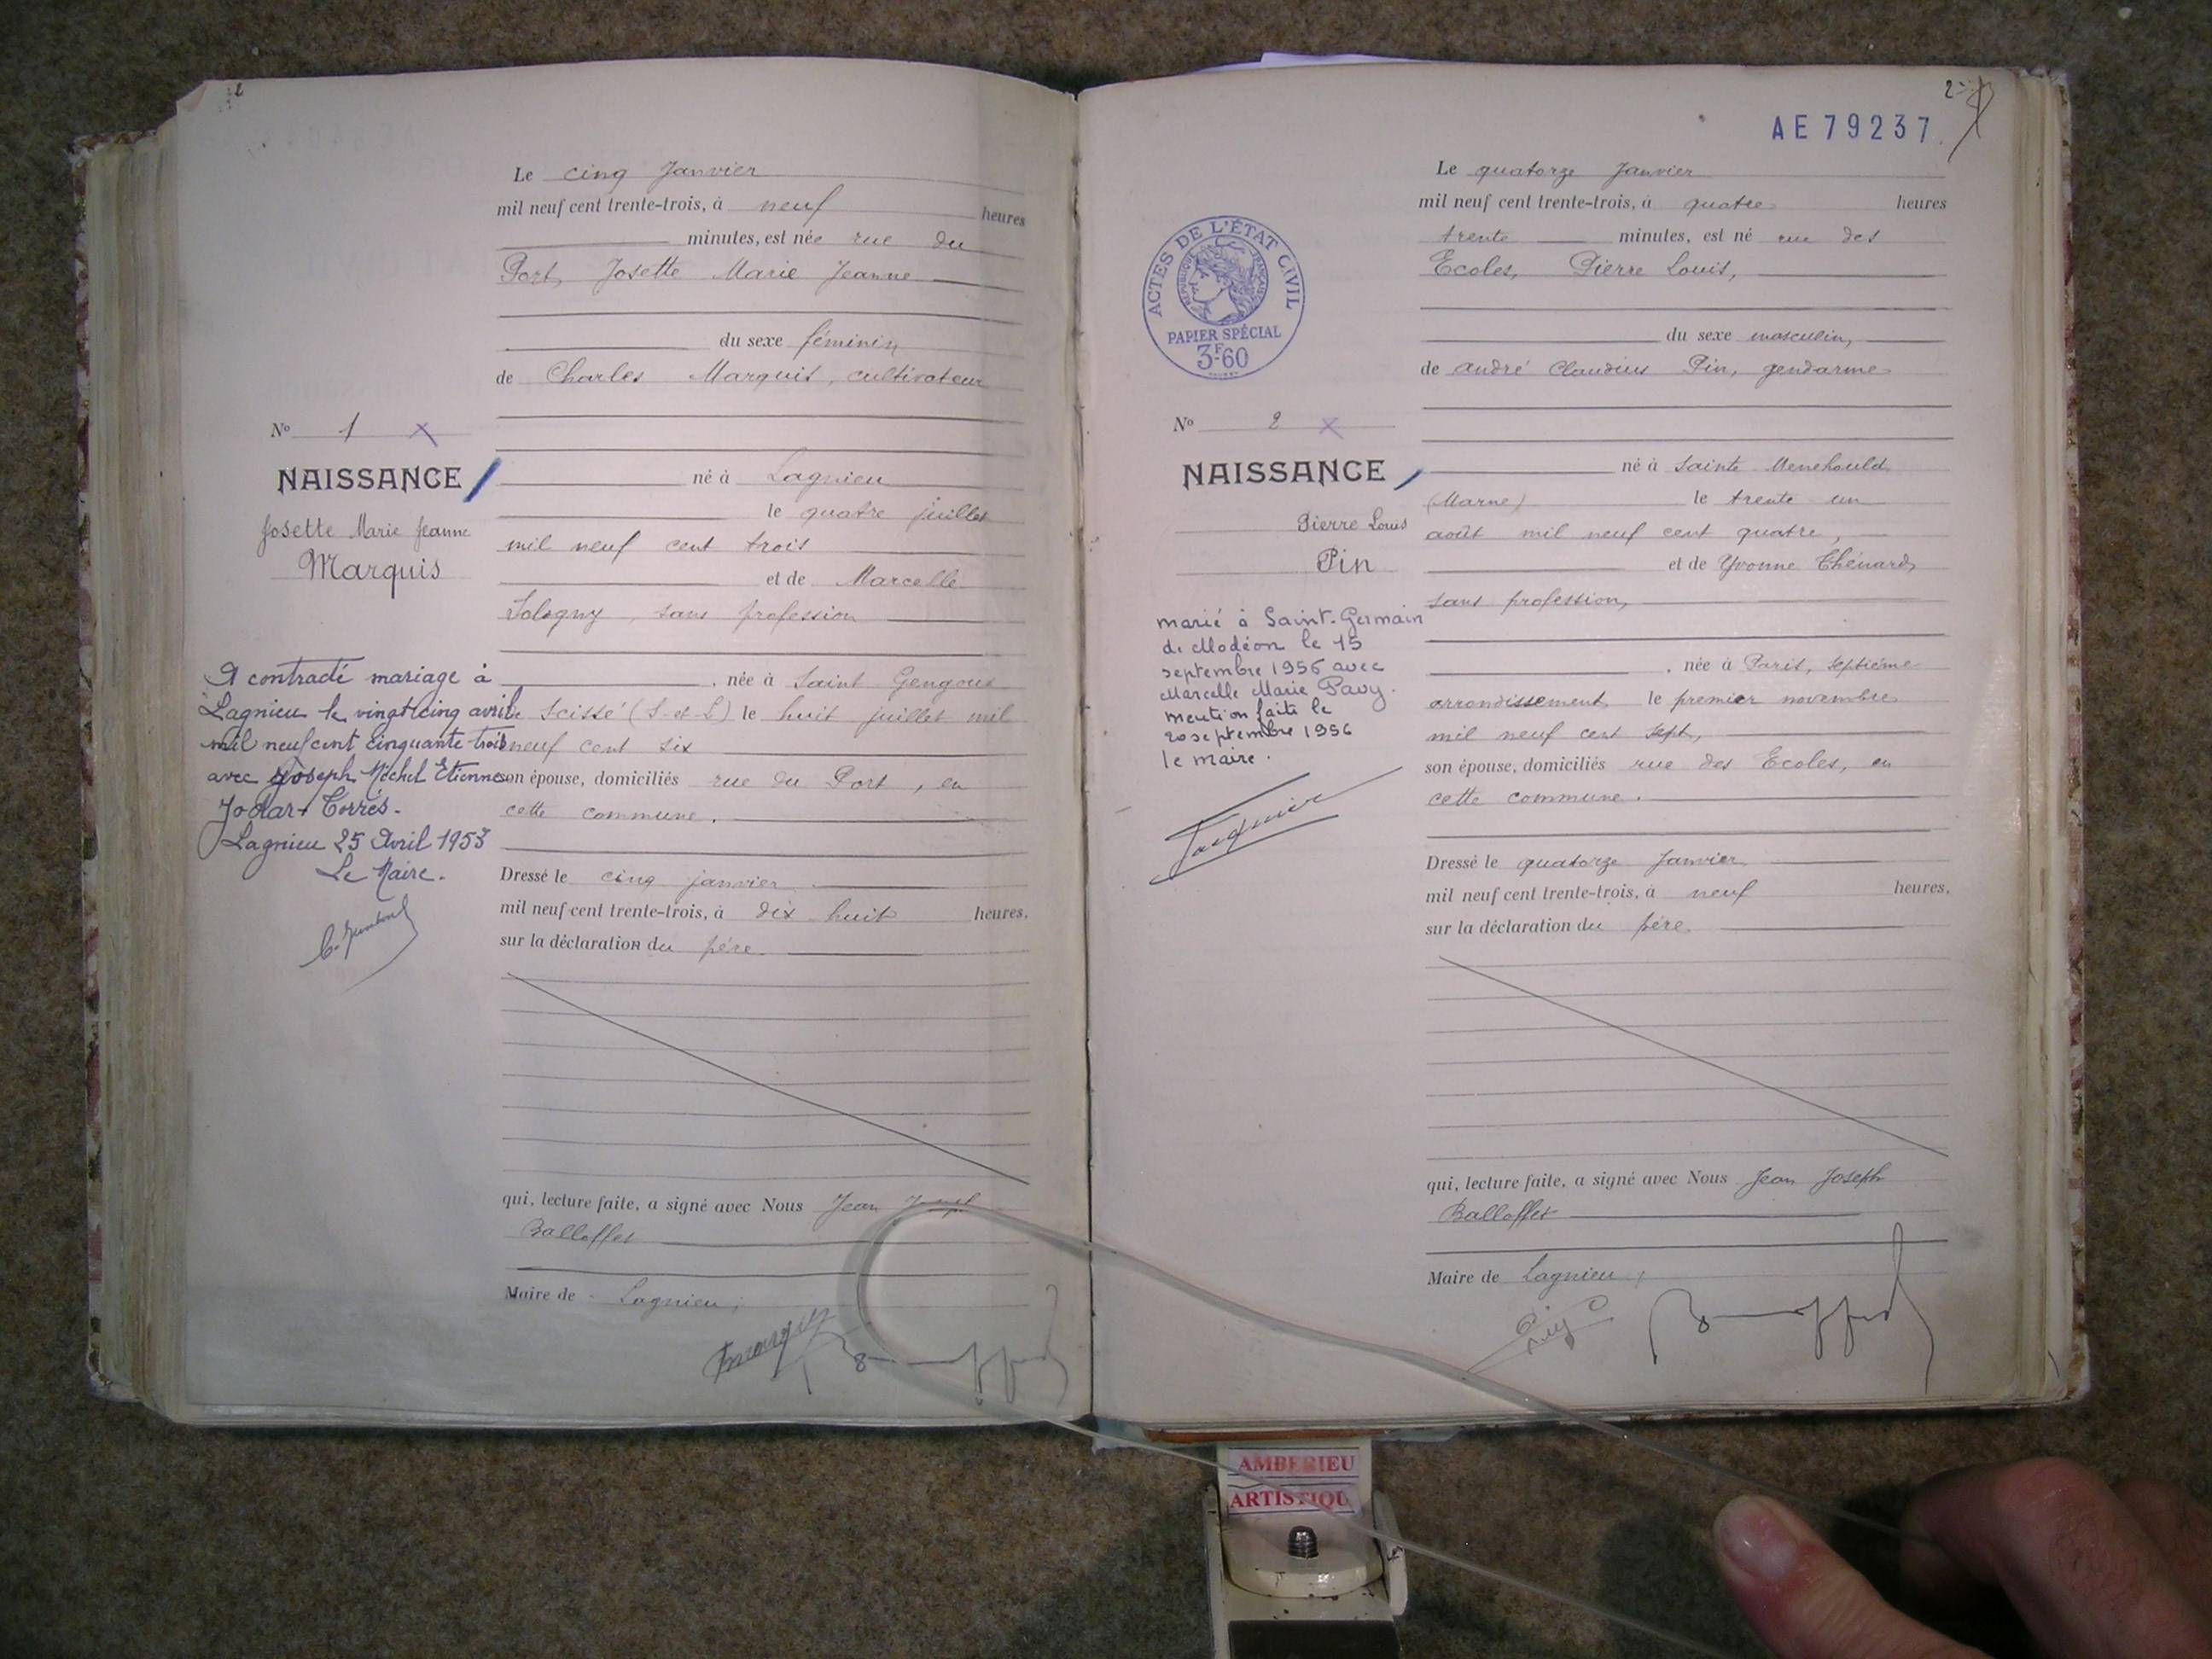 2
Le cinq Janvier
mil neuf cent trente-trois, à neuf heures
minutes, est née rue du
Port, Josette Marie Jeanne
du sexe féminin
de Charles Marquis, cultivateur
né à Lagnieu
le quatre juillet
mil neuf cent trois
et de Marcelle
Sologny, sans profession
, née à Saint Gengoux
de Scissé (S-et-L) le huit juillet mil
neuf cent six
son épouse, domiciliés rue du Port, en
cette commune.
Dressé le cinq janvier
mil neuf cent trente-trois, à dix huit heures,
sur la déclaration du père.
qui, lecture faite, a signé avec Nous Jean Joseph
Balloffet
Maire de Lagnieu,
No 1 X
NAISSANCE
Josette Marie Jeanne
Marquis
A contracté mariage à
Lagnieu le vingt cinq avril
mil neuf cent cinquante trois
avec Joseph Michel Etienne
Jodar+Torrés.
Lagnieu 25 Avril 1953
Le Maire.
2
AE79237
ACTES DE L'ÉTAT CIVIL
RÉPUBLIQUE FRANÇAISE
PAPIER SPÉCIAL
3F60
Le quatorze Janvier
mil neuf cent trente-trois, à quatre heures
trente minutes, est né rue des
Ecoles, Pierre Louis,
du sexe masculin,
de André Claudius Pin, gendarme
né à Sainte Menehould
(Marne) le trente un
août mil neuf cent quatre,
et de Yvonne Chénard,
sans profession,
, née à Paris, septième
arrondissement, le premier novembre
mil neuf cent sept,
son épouse, domiciliés rue des Ecoles, en
cette commune.
Dressé le quatorze Janvier
mil neuf cent trente-trois, à neuf heures,
sur la déclaration du père.
qui, lecture faite, a signé avec Nous Jean Joseph
Balloffet
Maire de Lagnieu,
No 2 X
NAISSANCE
Pierre Louis
Pin
marié à Saint-Germain
de Modéon le 15
septembre 1956 avec
Marcelle Marie Pavy.
mention faite le
20 septembre 1956
le maire.
AMBERIEU
ARTISTIQU